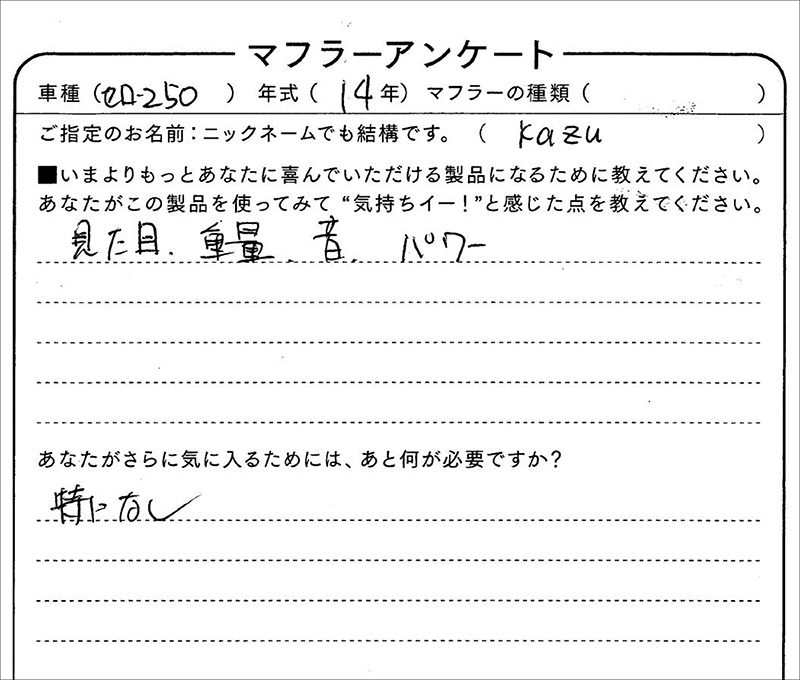 マフラーアンケート
車種（セロー250　）　年式（　14年）　マフラーの種類（　　　　　）
ご指定のお名前：ニックネームでも結構です。（　kazu　　　）
■いまよりもっとあなたに喜んでいただける製品になるために教えてください。
あなたがこの製品を使ってみて“気持ちイー！”と感じた点を教えてください。
見た目、重量、音、パワー
あなたがさらに気に入るためには、あと何が必要ですか？
特になし